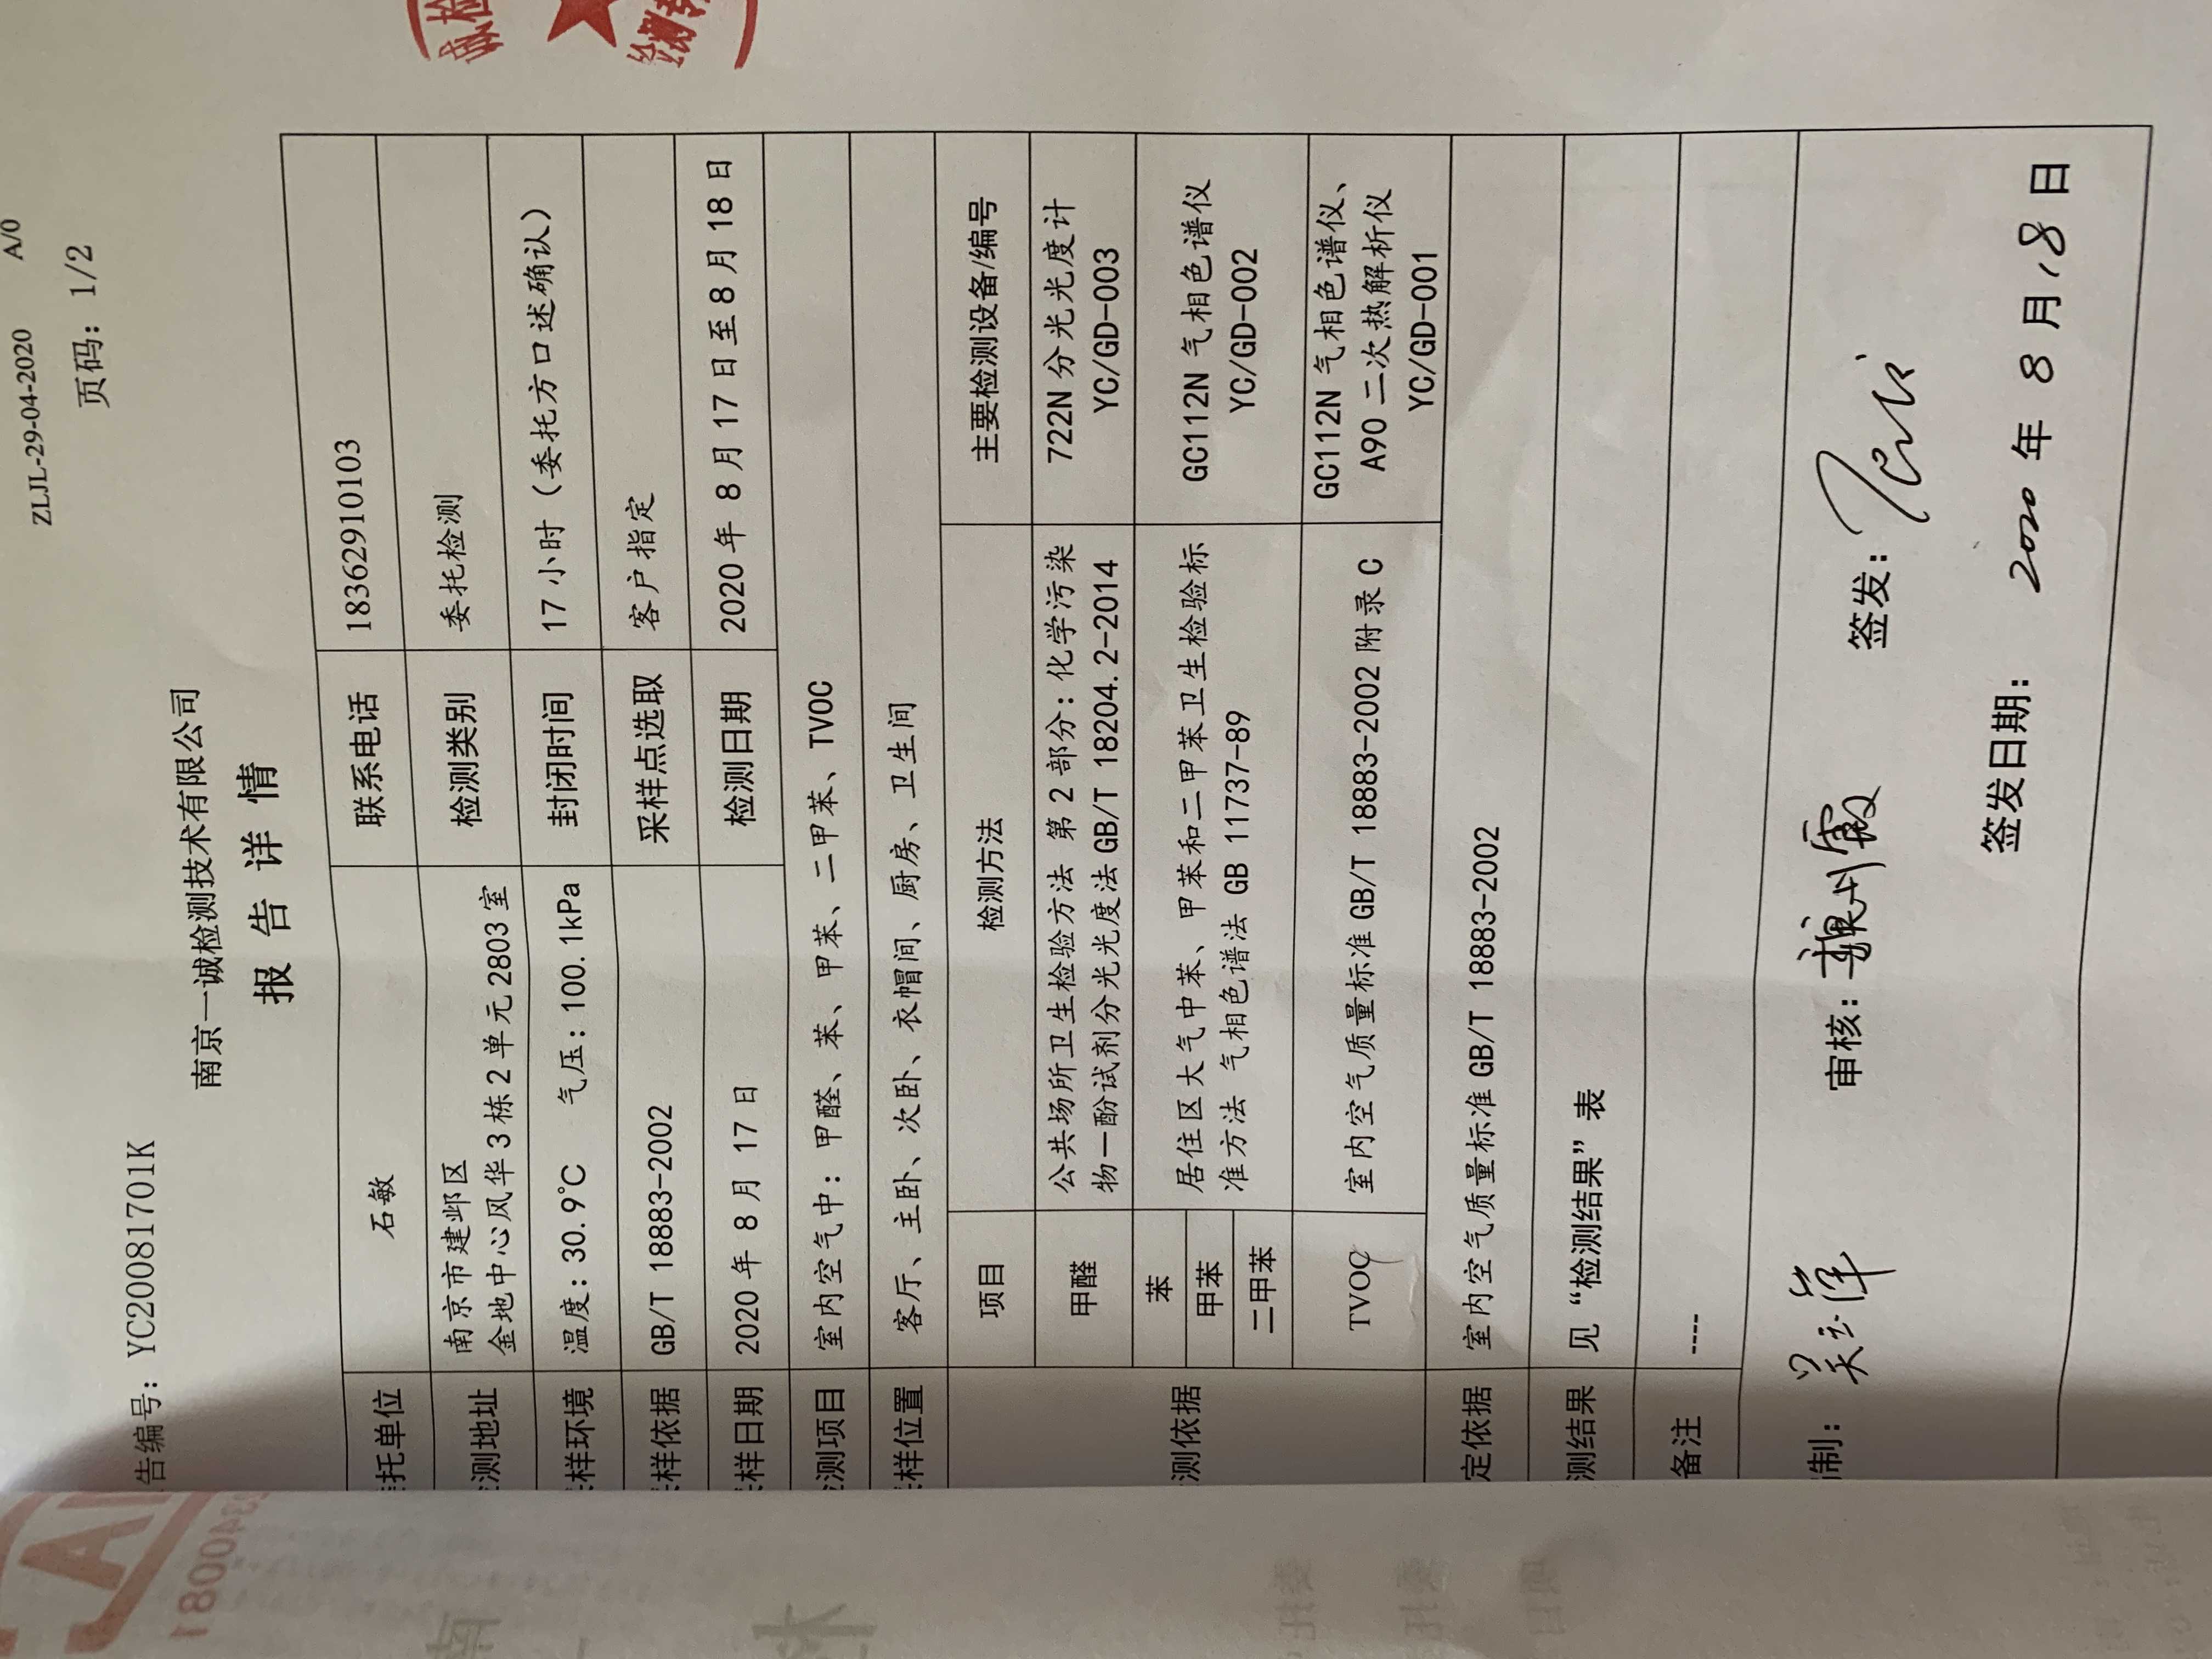 ZLJL-29-04-2020 A/0
告编号：YC20081701K
页码：1/2
南京一诚检测技术有限公司
报告详情
托单位 石敏 联系电话 18362910103
测地址 南京市建邺区
金地中心风华3栋2单元2803室 检测类别 委托检测
样环境 温度：30.9℃ 气压：100.1kPa 封闭时间 17小时（委托方口述确认）
样依据 GB/T 18883-2002 采样点选取 客户指定
样日期 2020年8月17日 检测日期 2020年8月17日至8月18日
测项目 室内空气中：甲醛、苯、甲苯、二甲苯、TVOC
样位置 客厅、主卧、次卧、衣帽间、厨房、卫生间
测依据
项目 检测方法 主要检测设备/编号
甲醛 公共场所卫生检验方法 第2部分：化学污染
物—酚试剂分光光度法GB/T 18204.2-2014
722N分光光度计
YC/GD-003
苯
甲苯
二甲苯
居住区大气中苯、甲苯和二甲苯卫生检验标
准方法 气相色谱法 GB 11737-89
GC112N气相色谱仪
YC/GD-002
TVOC 室内空气质量标准GB/T 18883-2002附录C
GC112N气相色谱仪、
A90二次热解析仪
YC/GD-001
定依据 室内空气质量标准GB/T 18883-2002
测结果 见“检测结果”表
备注 ----
制： 审核： 签发：
签发日期： 2020年8月18日
诚检
检测专
1800